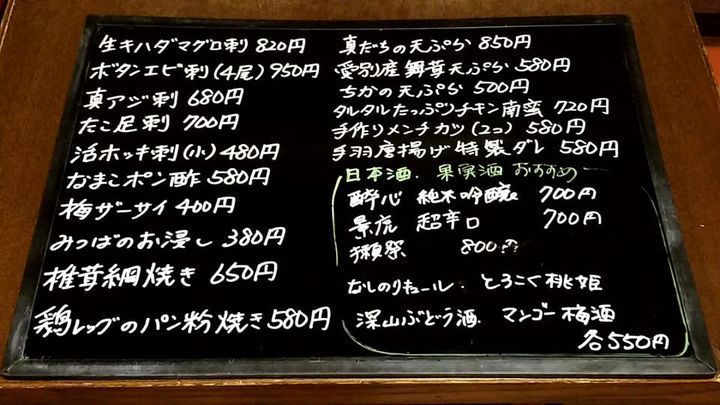 生キハダマグロ刺 820円
ボタンエビ刺(4尾) 950円
真アジ刺 680円
たこ足刺 700円
活ホッキ刺(小) 480円
なまこポン酢 580円
梅ザーサイ 400円
みつばのお浸し 380円
椎茸網焼き 650円
鶏レッグのパン粉焼き 580円
真だちの天ぷら 850円
愛別産舞茸天ぷら 580円
ちかの天ぷら 500円
タルタルたっぷりチキン南蛮 720円
手作りメンチカツ(2コ) 580円
手羽唐揚げ特製ダレ 580円
日本酒.果実酒おすすめ
酔心 純米吟醸 700円
景虎 超辛口 700円
獺祭 800円
なしのリキュール. とろこく桃姫
深山ぶどう酒. マンゴー梅酒
各550円